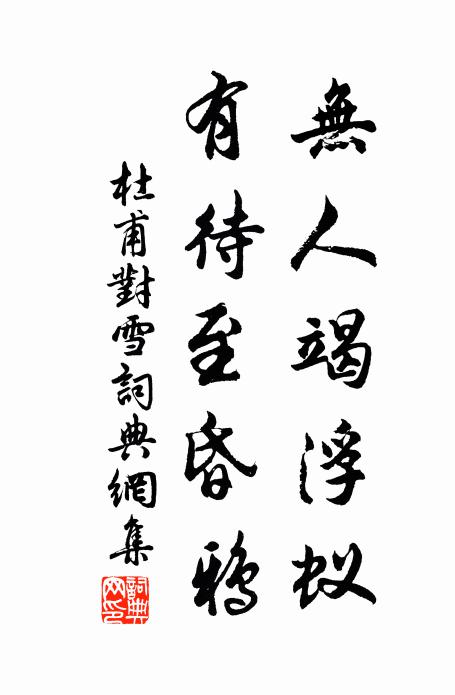 無人竭浮蚁
有待至昏鴉
杜甫對雪詞典網集
詞典网印